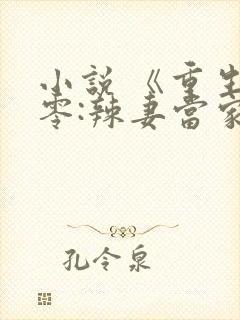 小说《重生
零:辣妻当家
孔令泉